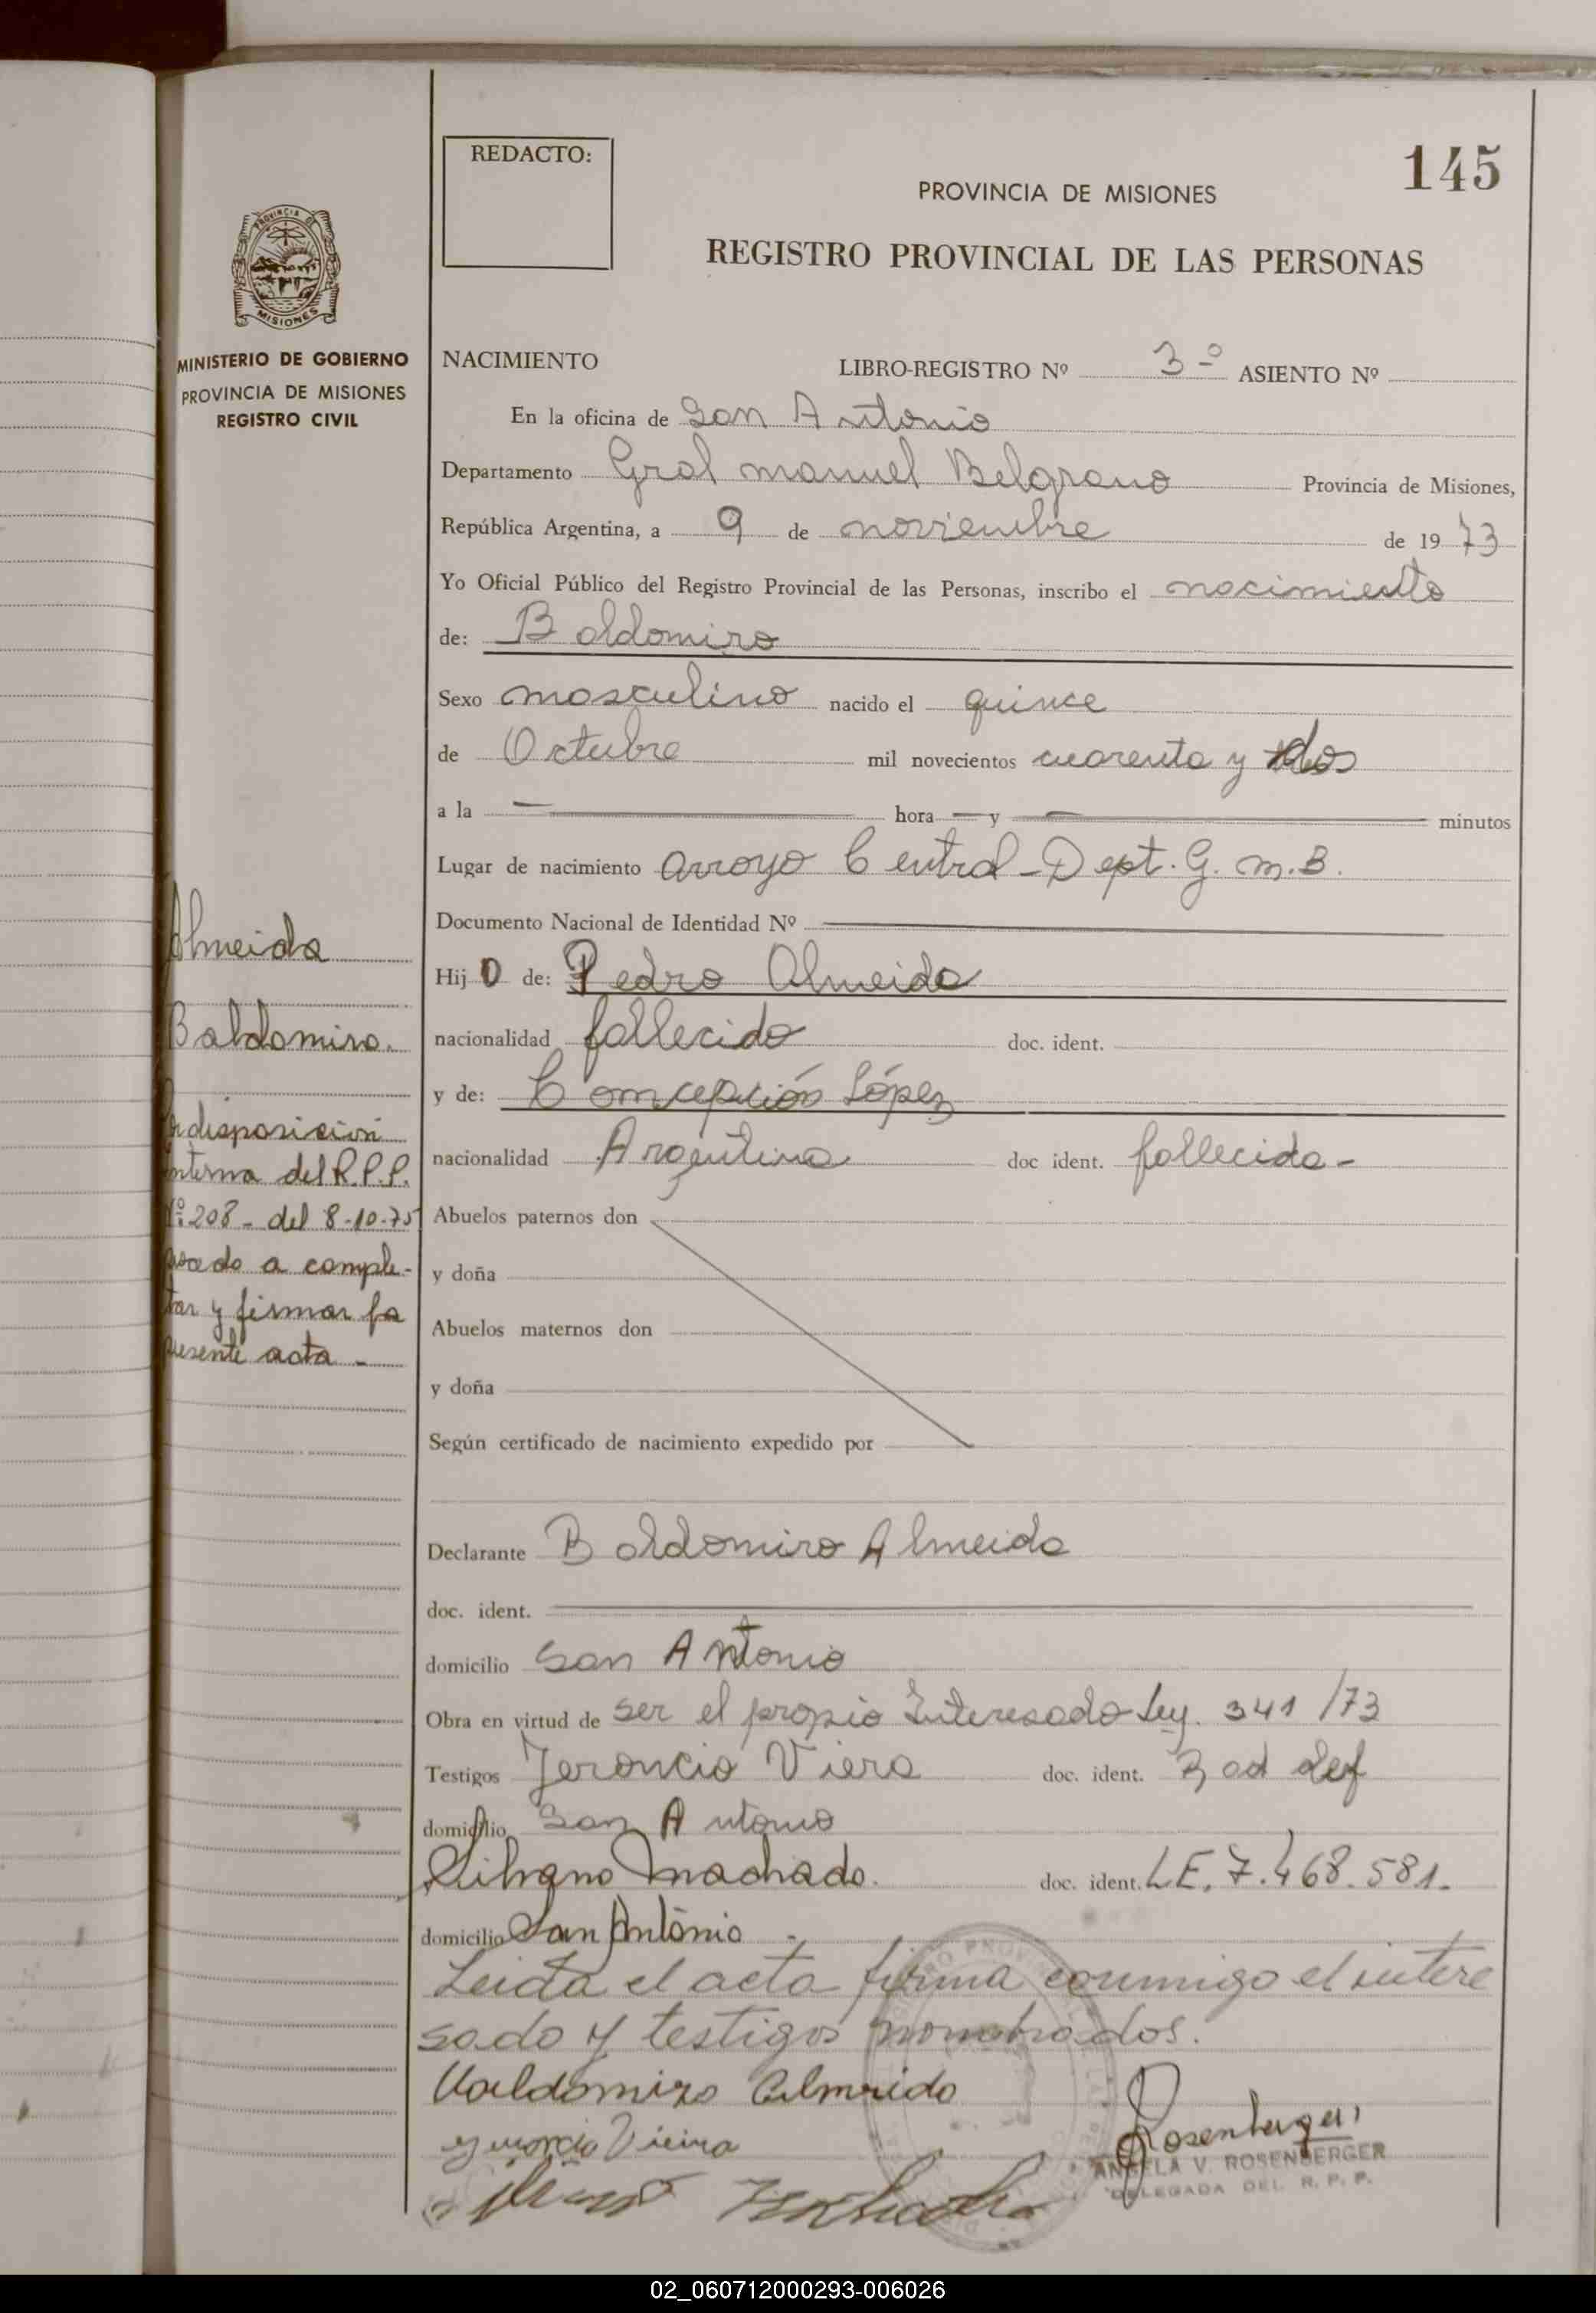 145
REDACTO:
PROVINCIA DE MISIONES
REGISTRO PROVINCIAL DE LAS PERSONAS
MISIONES
MINISTERIO DE GOBIERNO
PROVINCIA DE MISIONES
REGISTRO CIVIL
NACIMIENTO LIBRO-REGISTRO Nº 3º ASIENTO Nº
En la oficina de San Antonio
Departamento Gral manuel Belgrano Provincia de Misiones,
República Argentina, a 9 de noviembre de 19 73
Yo Oficial Público del Registro Provincial de las Personas, inscribo el nacimiento
de: Baldomiro
Sexo masculino nacido el quince
de Octubre mil novecientos cuarenta y dos
a la — hora — y — minutos
Lugar de nacimiento arroyo Central - Dept. G. m. B.
Documento Nacional de Identidad Nº
Hij o de: Pedro Almeida
nacionalidad fallecido doc. ident.
y de: Comcepción López
nacionalidad Argentina doc ident. fallecida -
Abuelos paternos don
y doña
Abuelos maternos don
y doña
Según certificado de nacimiento expedido por
Almeida
Baldomiro.
disposición
interna del R.P.P.
Nº: 208 - del 8-10-75
a comple-
tar y firmar la
presente acta -
Declarante Baldomiro Almeida
doc. ident.
domicilio San Antonio
Obra en virtud de ser el propio Interesado Ley. 341/73
Testigos Jeroncio Viera doc. ident.
domicilio San Antonio
Silvano Machado. doc. ident. L.E. 7.468.581.
domicilio San Antônio
Leida el acta firma conmigo el intere
sado y testigos nombrados.
Valdomiro Almeido
Vieira
Rosenberger
ANGELA V. ROSENBERGER
DELEGADA DEL R. P. P.
02_060712000293-006026